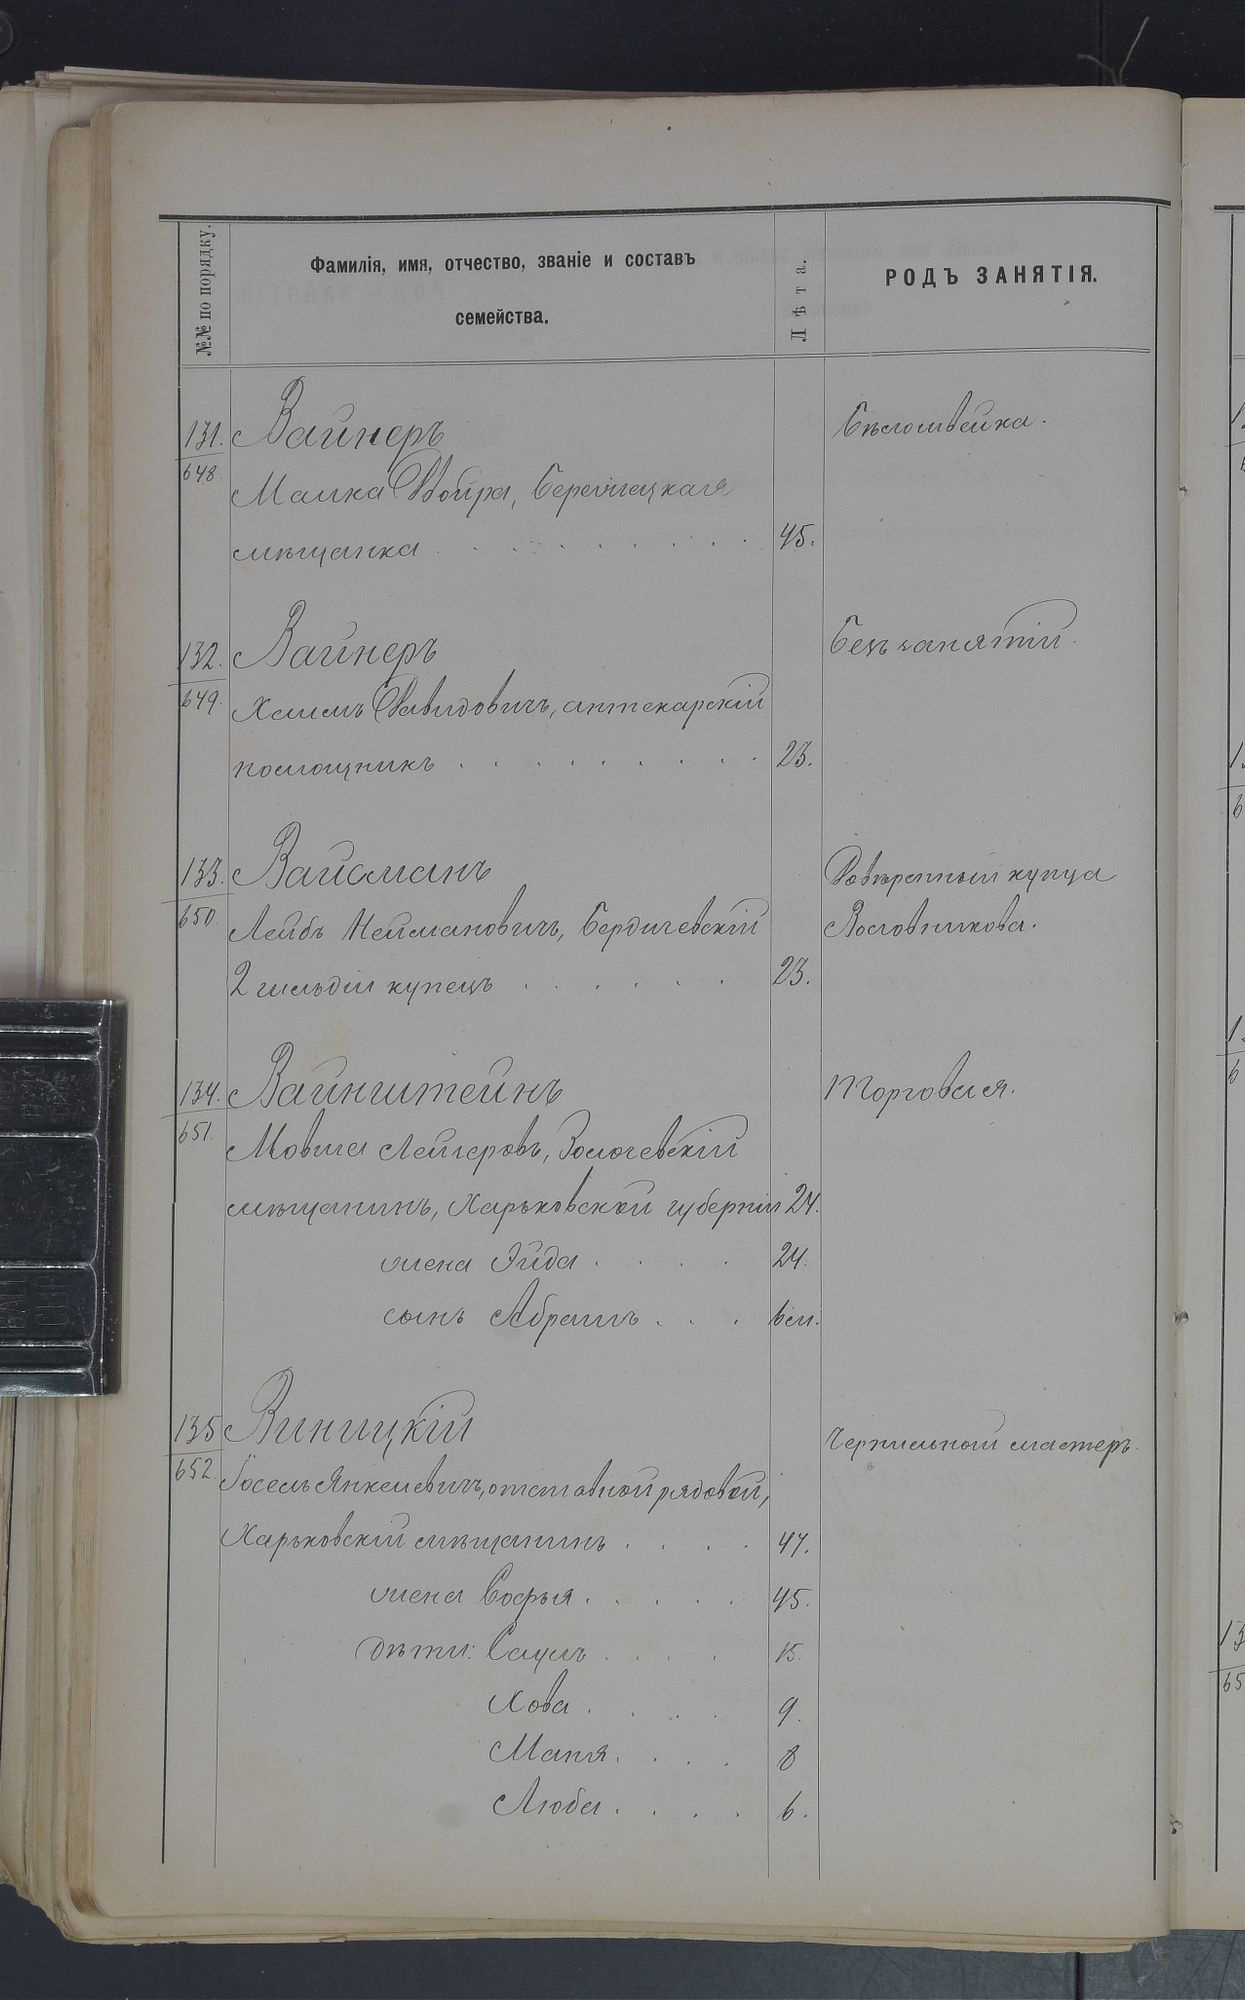 №№ по порядку.
Фамилія, имя, отчество, званіе и составъ
семейства.
Лѣта.
РОДЪ ЗАНЯТІЯ.
131. Вайнеръ Бѣлошвейка.
648. Малка Двойра,
мѣщанка 45.
132. Вайнеръ Безъ занятій.
649. Хаимъ Давидовичъ, аптекарскій
помощникъ 23.
133. Вайсманъ Довѣренный купца
650. Лейбъ Неймановичъ, Бердичевскій
2 гильдіи купецъ 23.
134. Вайнштейнъ Торговля.
651. Мовша Лейзеровъ, Золочевскій
мѣщанинъ, Харьковской губерніи 24.
жена Эйда 24.
сынъ Абрамъ 6 м.
135 Виницкій Чернильный мастеръ.
652. Іосель Янкелевичъ, отставной рядовой,
Харьковскій мѣщанинъ 47.
жена Софья 45.
дѣти: Саулъ 15.
Хова 9.
Маня 8
Люба 6.